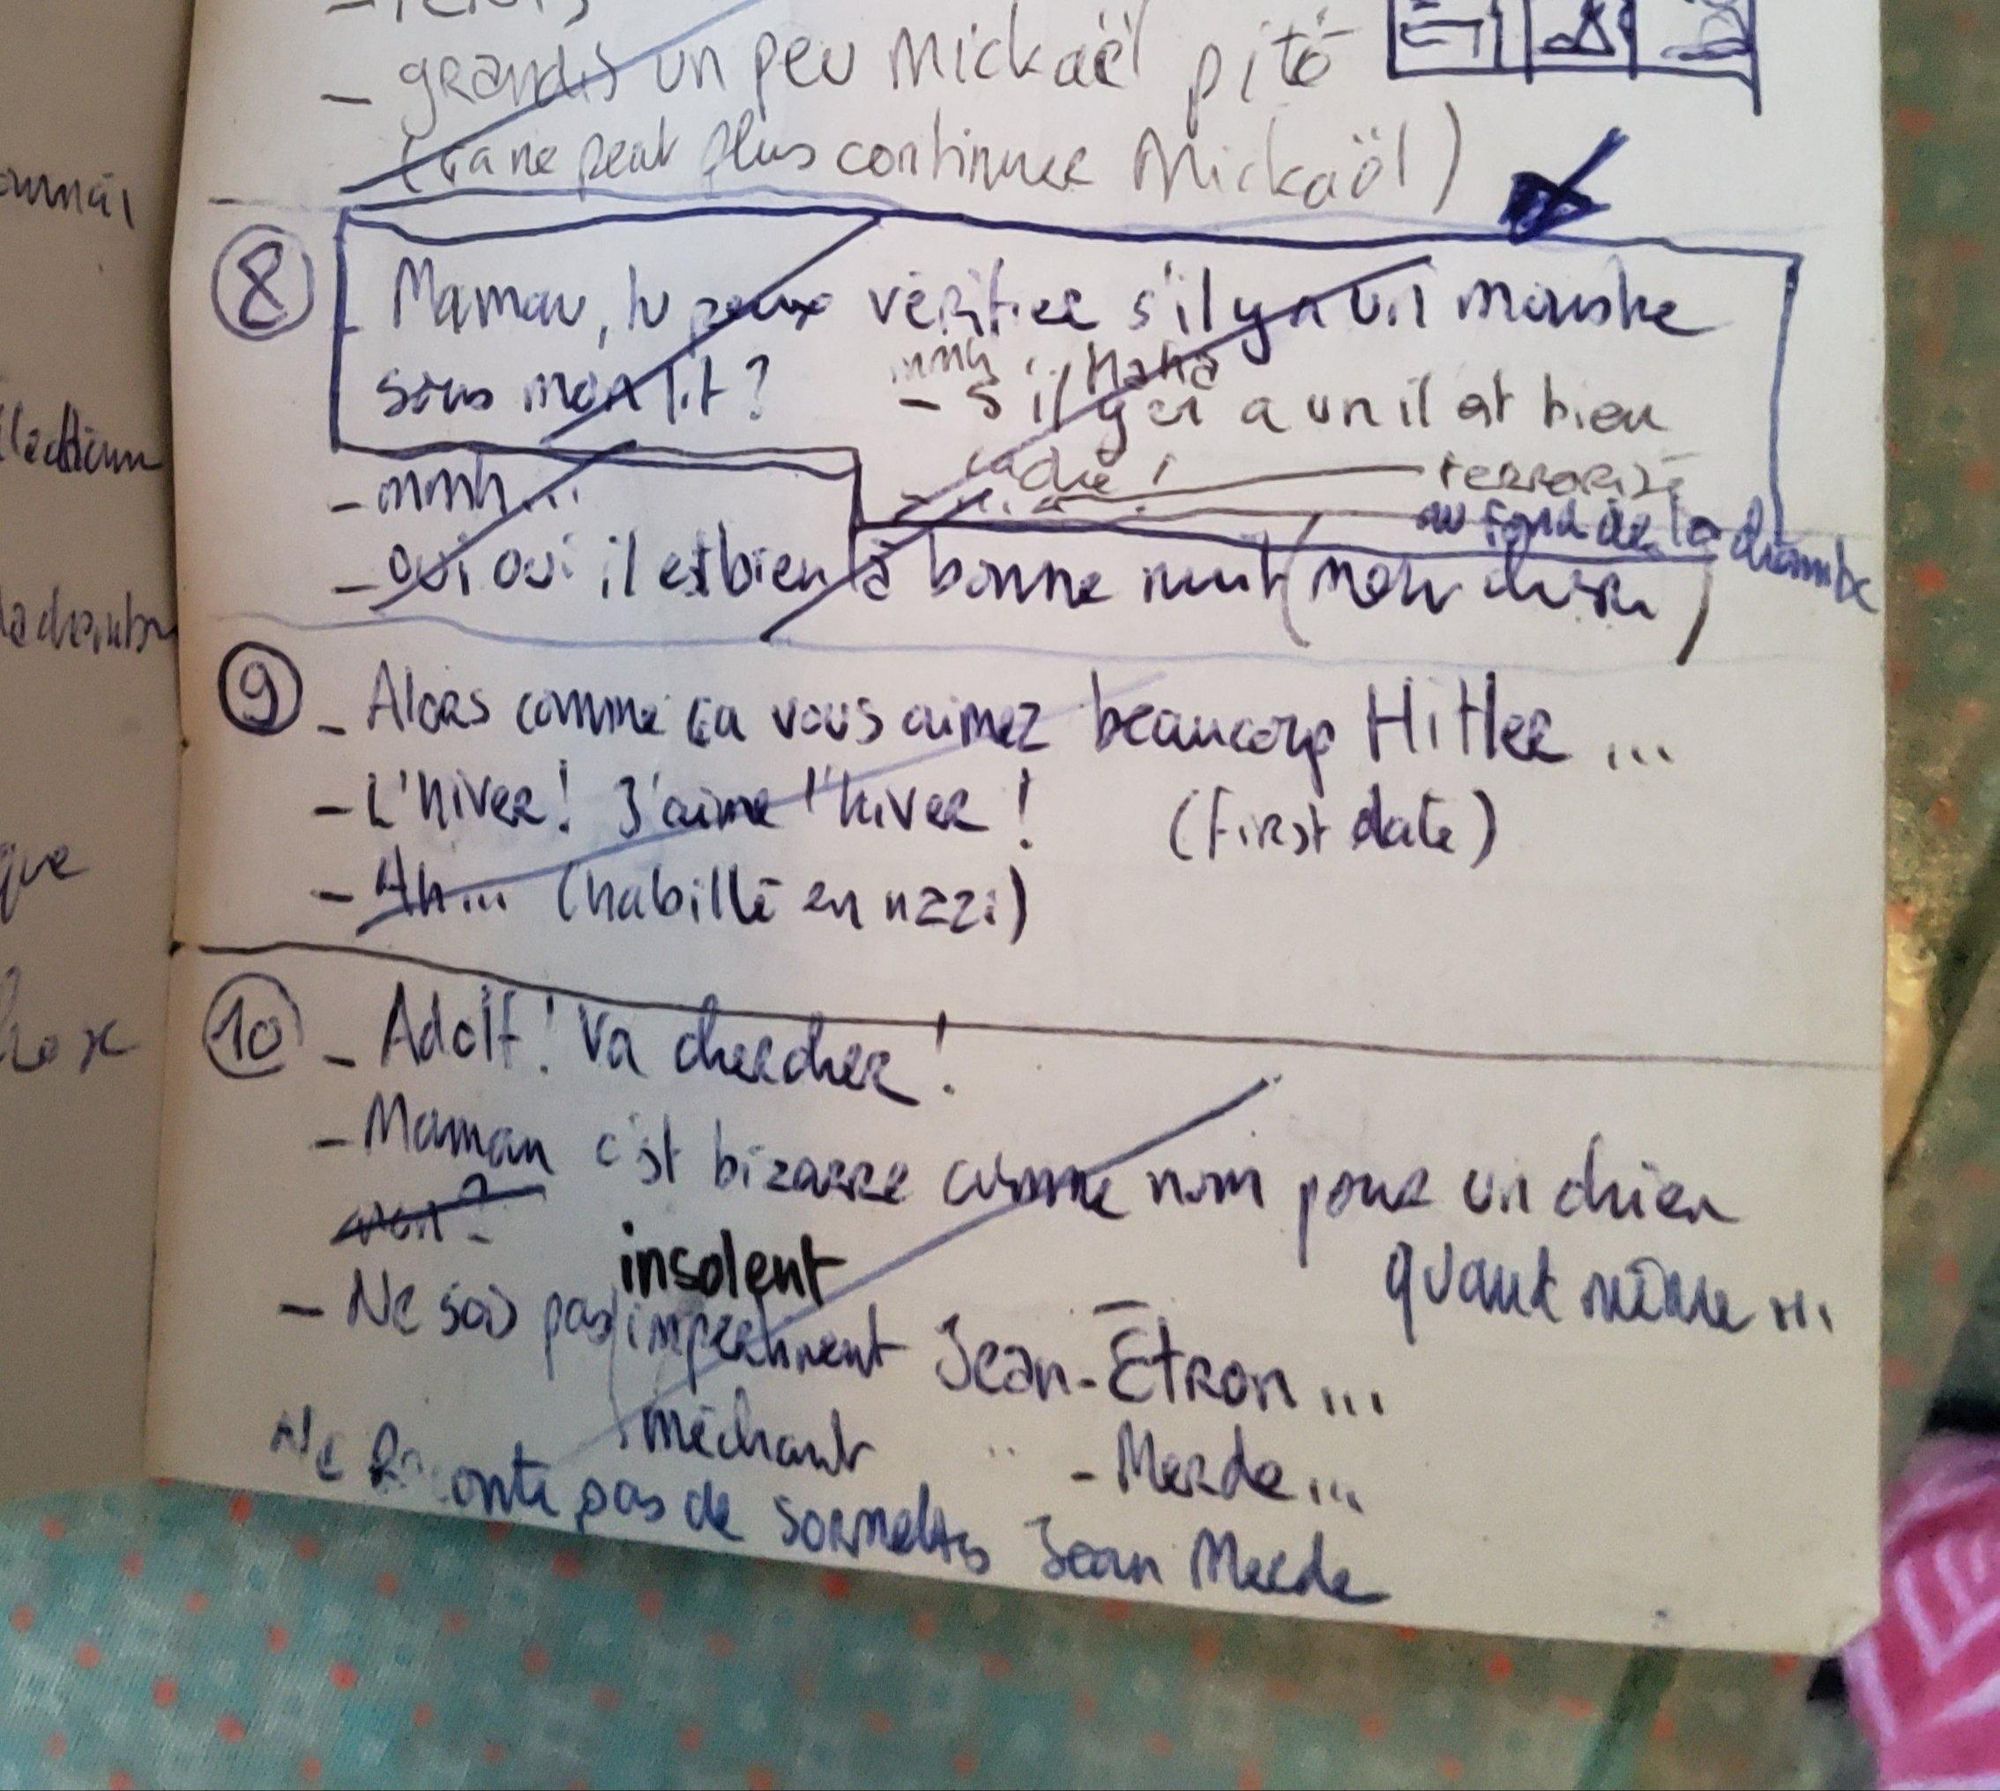 - grandis un peu Mickaël pité
(ça ne peut plus continuer Mickaël)
8
- Maman, tu peux vérifier s'il y a un monstre
sous mon lit ?
mmh... Haha
- S'il y en a un il est bien
caché !
terrorisé
au fond de la chambre
- mmh...
- oui oui il est bien là bonne nuit (mon chéri)
9
- Alors comme ça vous aimez beaucoup Hitler ...
- L'hiver ! J'aime l'hiver !
(First date)
- Ah... (habillé en nazi)
10
- Adolf ! Va chercher !
- Maman c'est bizarre comme nom pour un chien
non ?
quand même ...
insolent
- Ne sois pas impertinent Jean-Étron ...
méchant
- Merde ...
Ne Raconte pas de sornettes Jean Merde